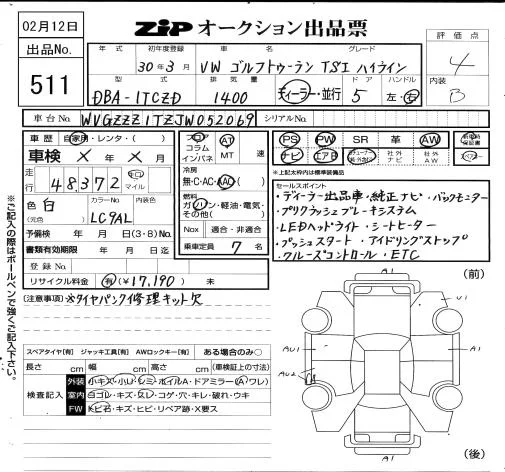 02月12日
ZIP オークション出品票
出品No.
511
評価点
4
内装
B
年式 初年度登録 車名 グレード
30年3月 VW ゴルフトゥーラン TSI ハイライン
型式 排気量 ドア ハンドル
DBA-1TCZD 1400 ディーラー・並行 5 左・右
車台No. WVGZZZ1TZJW052069 シリアルNo.
車歴 自家用・レンタ・( )
車検 × 年 × 月
走行 48,372 キロ マイル
色 白 カラーNo. LC9AL 内装色
(元色)
予備検 年 月 日(3・8)No.
書類有効期限 年 月 日迄
登録No.
リサイクル料金 有(¥17,190) 未
フロア コラム インパネ AT MT 速
冷房
無・C・AC・AAC( )
燃料
ガソリン・軽油・電気・その他( )
Nox 適合・非適合
乗車定員 7 名
PS PW SR 革 AW
ナビ エアB 社外ナビ 社外AW
※上記太枠内は標準装備品
セールスポイント
・ディーラー出品車・純正ナビ・バックモニター
・プリクラッシュブレーキシステム
・LEDヘッドライト・シートヒーター
・プッシュスタート・アイドリングストップ
・クルーズコントロール・ETC
(注意事項) ※タイヤパンク修理キット欠
スペアタイヤ[有] ジャッキ工具[有] AWロックキー[有] ある場合のみ〇
長さ cm 幅 cm 高さ cm (車検証上の寸法)
検査記入
外装 小キズ・小U・シミ・ホイルA・ドアミラー(A・ワレ)
室内 ヨゴレ・キズ・スレ・コゲ・穴・キレ・破れ・ウキ
FW トビ石・キズ・ヒビ・リペア跡・X要ス
※ご記入の際はボールペンで強くご記入下さい。
(前)
A1
U1
AU1
AU2
A1
(後)